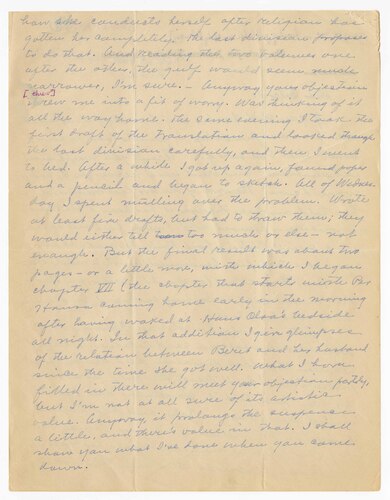 how she conducts herself after religion has
gotten her completely. The last division proposes
to do that. And reading the two volumes one
after the other, the gulf would seem made
narrower, I'm sure. – Anyway, your objections
[thus]
threw me into a fit of worry. Was thinking of it
all the way home. The same evening I took the
first draft of the translation and looked through
the last division carefully, and then I went
to bed. After a while I got up again, found paper
and a pencil and began to sketch. All of Wednes-
day I spent mulling over the problem. Wrote
at least five drafts, but had to throw them; they
would either tell too much or else – not
enough. But the final result was about two
pages – or a little more, with which I began
chapter VII (the chapter that starts with Per
Hansa coming home early in the morning
after having waked at Hans Olsa's bedside
all night. In that addition I give glimpses
of the relation between Beret and her husband
since the time she got well. What I have
filled in there will meet your objection partly,
but I'm not at all sure of its artistic
value. Anyway, it prolongs the suspense
a little, and there's value in that. I shall
show you what I've done when you come
down.